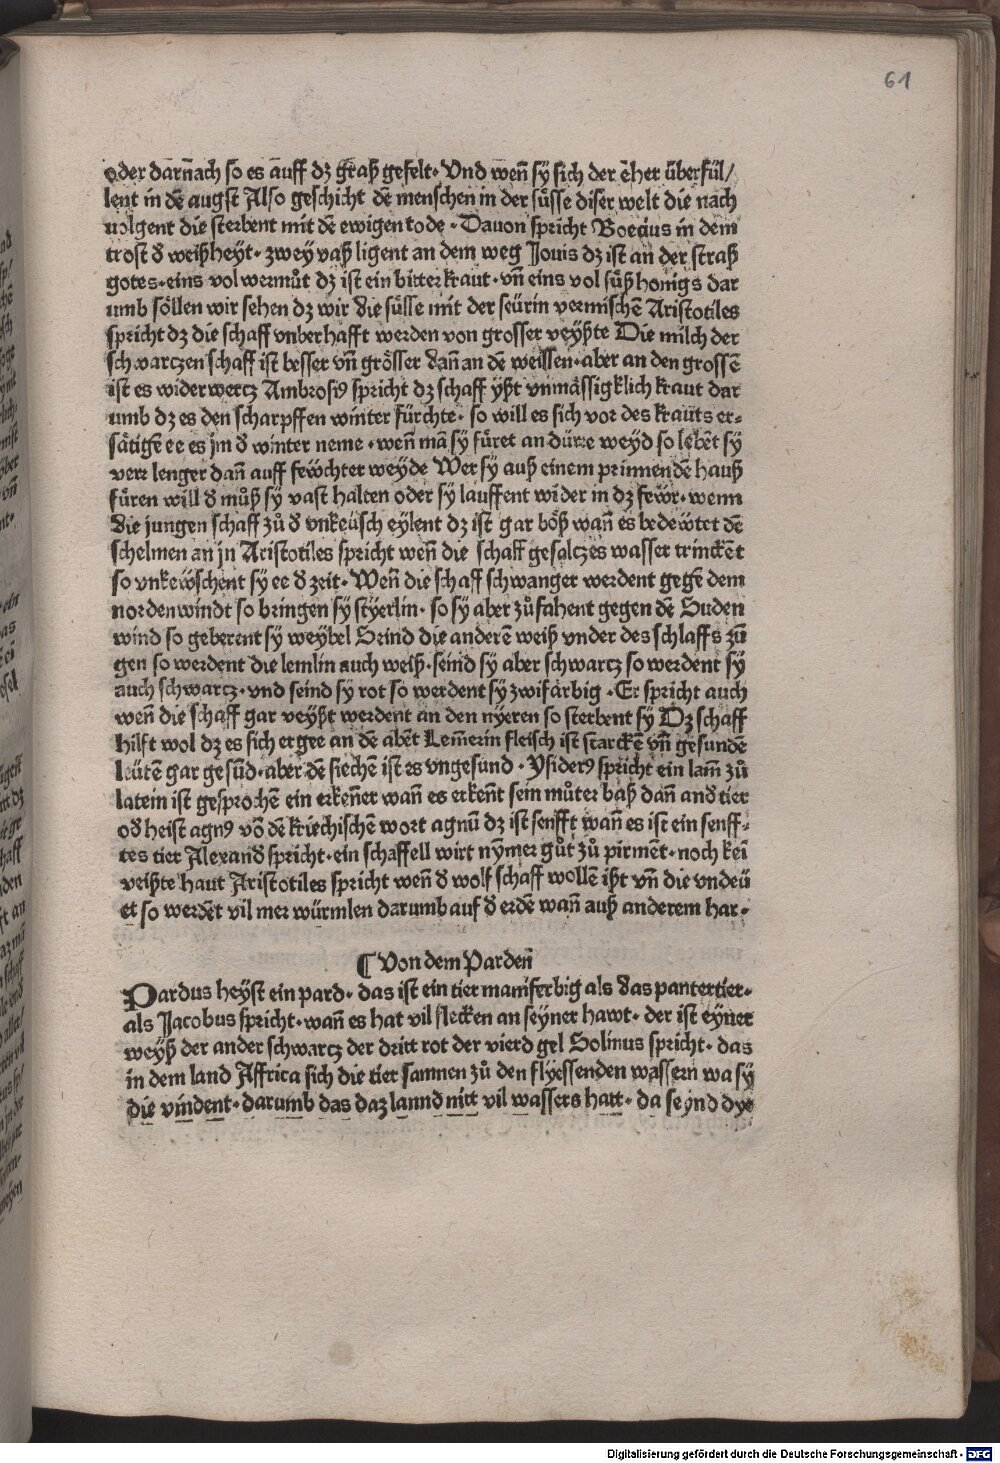 61
oder darnach so es auff dz graß gefelt· Vnd wen̄ sÿ sich der ēher überfül/
lent in dē augst Also geschicht dē menschen in der süsse diser welt die nach
uolgent die sterbent mit dē ewigen tode · Dauon spricht Boecius in dem
trost d̄ weißheÿt· zweÿ vaß ligent an dem weg Jouis dz ist an der straß
gotes· eins vol wermůt dz ist ein bitter kraut· vn̄ eins vol süß honigs dar
umb söllen wir sehen dz wir die süsse mit der seürin vermischē Aristotiles
spricht dz die schaff vnberhafft werden von grosser veÿßte Die milch der
schwartzen schaff ist besser vn̄ grösser dan̄ an dē weissen· aber an den grossē
ist es widerwertz Ambrosiꝰ spricht dz schaff ÿßt vnmässigklich kraut dar
umb dz es den scharpffen winter fürchte· so will es sich vor des krauts er-
sätigē ee es jm d̄ winter neme · wen̄ mā sÿ füret an dürre weÿd so lebēt sÿ
verr lenger dan̄ auff fewchter weÿde Wer sÿ auß einem prinnendē hauß
füren will d̄ můß sÿ vast halten oder sÿ lauffent wider in dz fewr· wenn
die jungen schaff zů d̄ vnkeüsch eÿlent dz ist gar böß wan̄ es bedewtet dē
schelmen an jn Aristotiles spricht wen̄ die schaff gesaltzes wasser trinckēt
so vnkewschent sÿ ee d̄ zeit· Wen̄ die schaff schwanger werdent gegē dem
nordenwindt so bringen sÿ stÿerlin· so sÿ aber zůfahent gegen dē Suden
wind so geberent sÿ weÿbel Seind die anderē weiß vnder des schlaffs zū
gen so werdent die lemlin auch weiß· seind sÿ aber schwartz so werdent sÿ
auch schwartz· vnd seind sÿ rot so werdent sÿ zwifärbig · Er spricht auch
wen̄ die schaff gar veÿßt werdent an den nÿeren so sterbent sÿ Dz schaff
hilft wol dz es sich ergee an dē abēt Lem̄erin fleisch ist starckē vn̄ gesundē
leütē gar gesūd· aber dē siechē ist es vngesund · Ysiderꝰ spricht ein lam̄ zů
latein ist gesprochē ein erken̄er wan̄ es erken̄t sein můter baß dan̄ and̄ tier
od̄ heist agnꝰ vō dē kriechischē wort agnū dz ist senfft wan̄ es ist ein senff-
tes tier Alexand̄ spricht· ein schaffell wirt nÿmer gůt zů pirmēt· noch kei
veißte haut Aristotiles spricht wen̄ d̄ wolf schaff wollē ißt vn̄ die vndeü
et so werdēt vil mer würmlen darumb auf d̄ erdē wan̄ auß anderem har·
¶ Von dem Parden̄
Pardus heÿst ein pard· das ist ein tier maniferbig als das pantertier·
als Jacobus spricht· wan̄ es hat vil flecken an seÿner hawt· der ist eÿner
weÿß der ander schwartz der dritt rot der vierd gel Solinus spricht· das
in dem land Affrica sich die tier samnen zů den flÿessenden wassern wa sÿ
die vindent· darumb das daz lannd nitt vil wassers hatt· da seÿnd dÿe
Digitalisierung gefördert durch die Deutsche Forschungsgemeinschaft - DFG